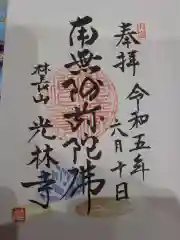 奉拝
令和五年
六月十日
南無阿弥陀佛
光林寺